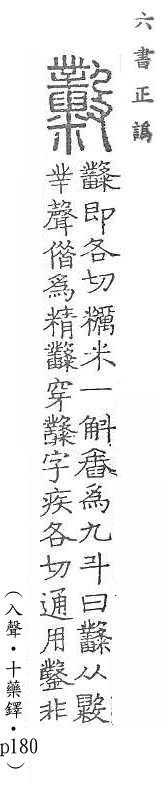 六書正譌
糳
糳即各切糲米一斛舂爲九斗曰糳从毇
丵聲偕爲精糳穿糳字疾各切通用鑿非
（入聲．十藥鐸．p180）